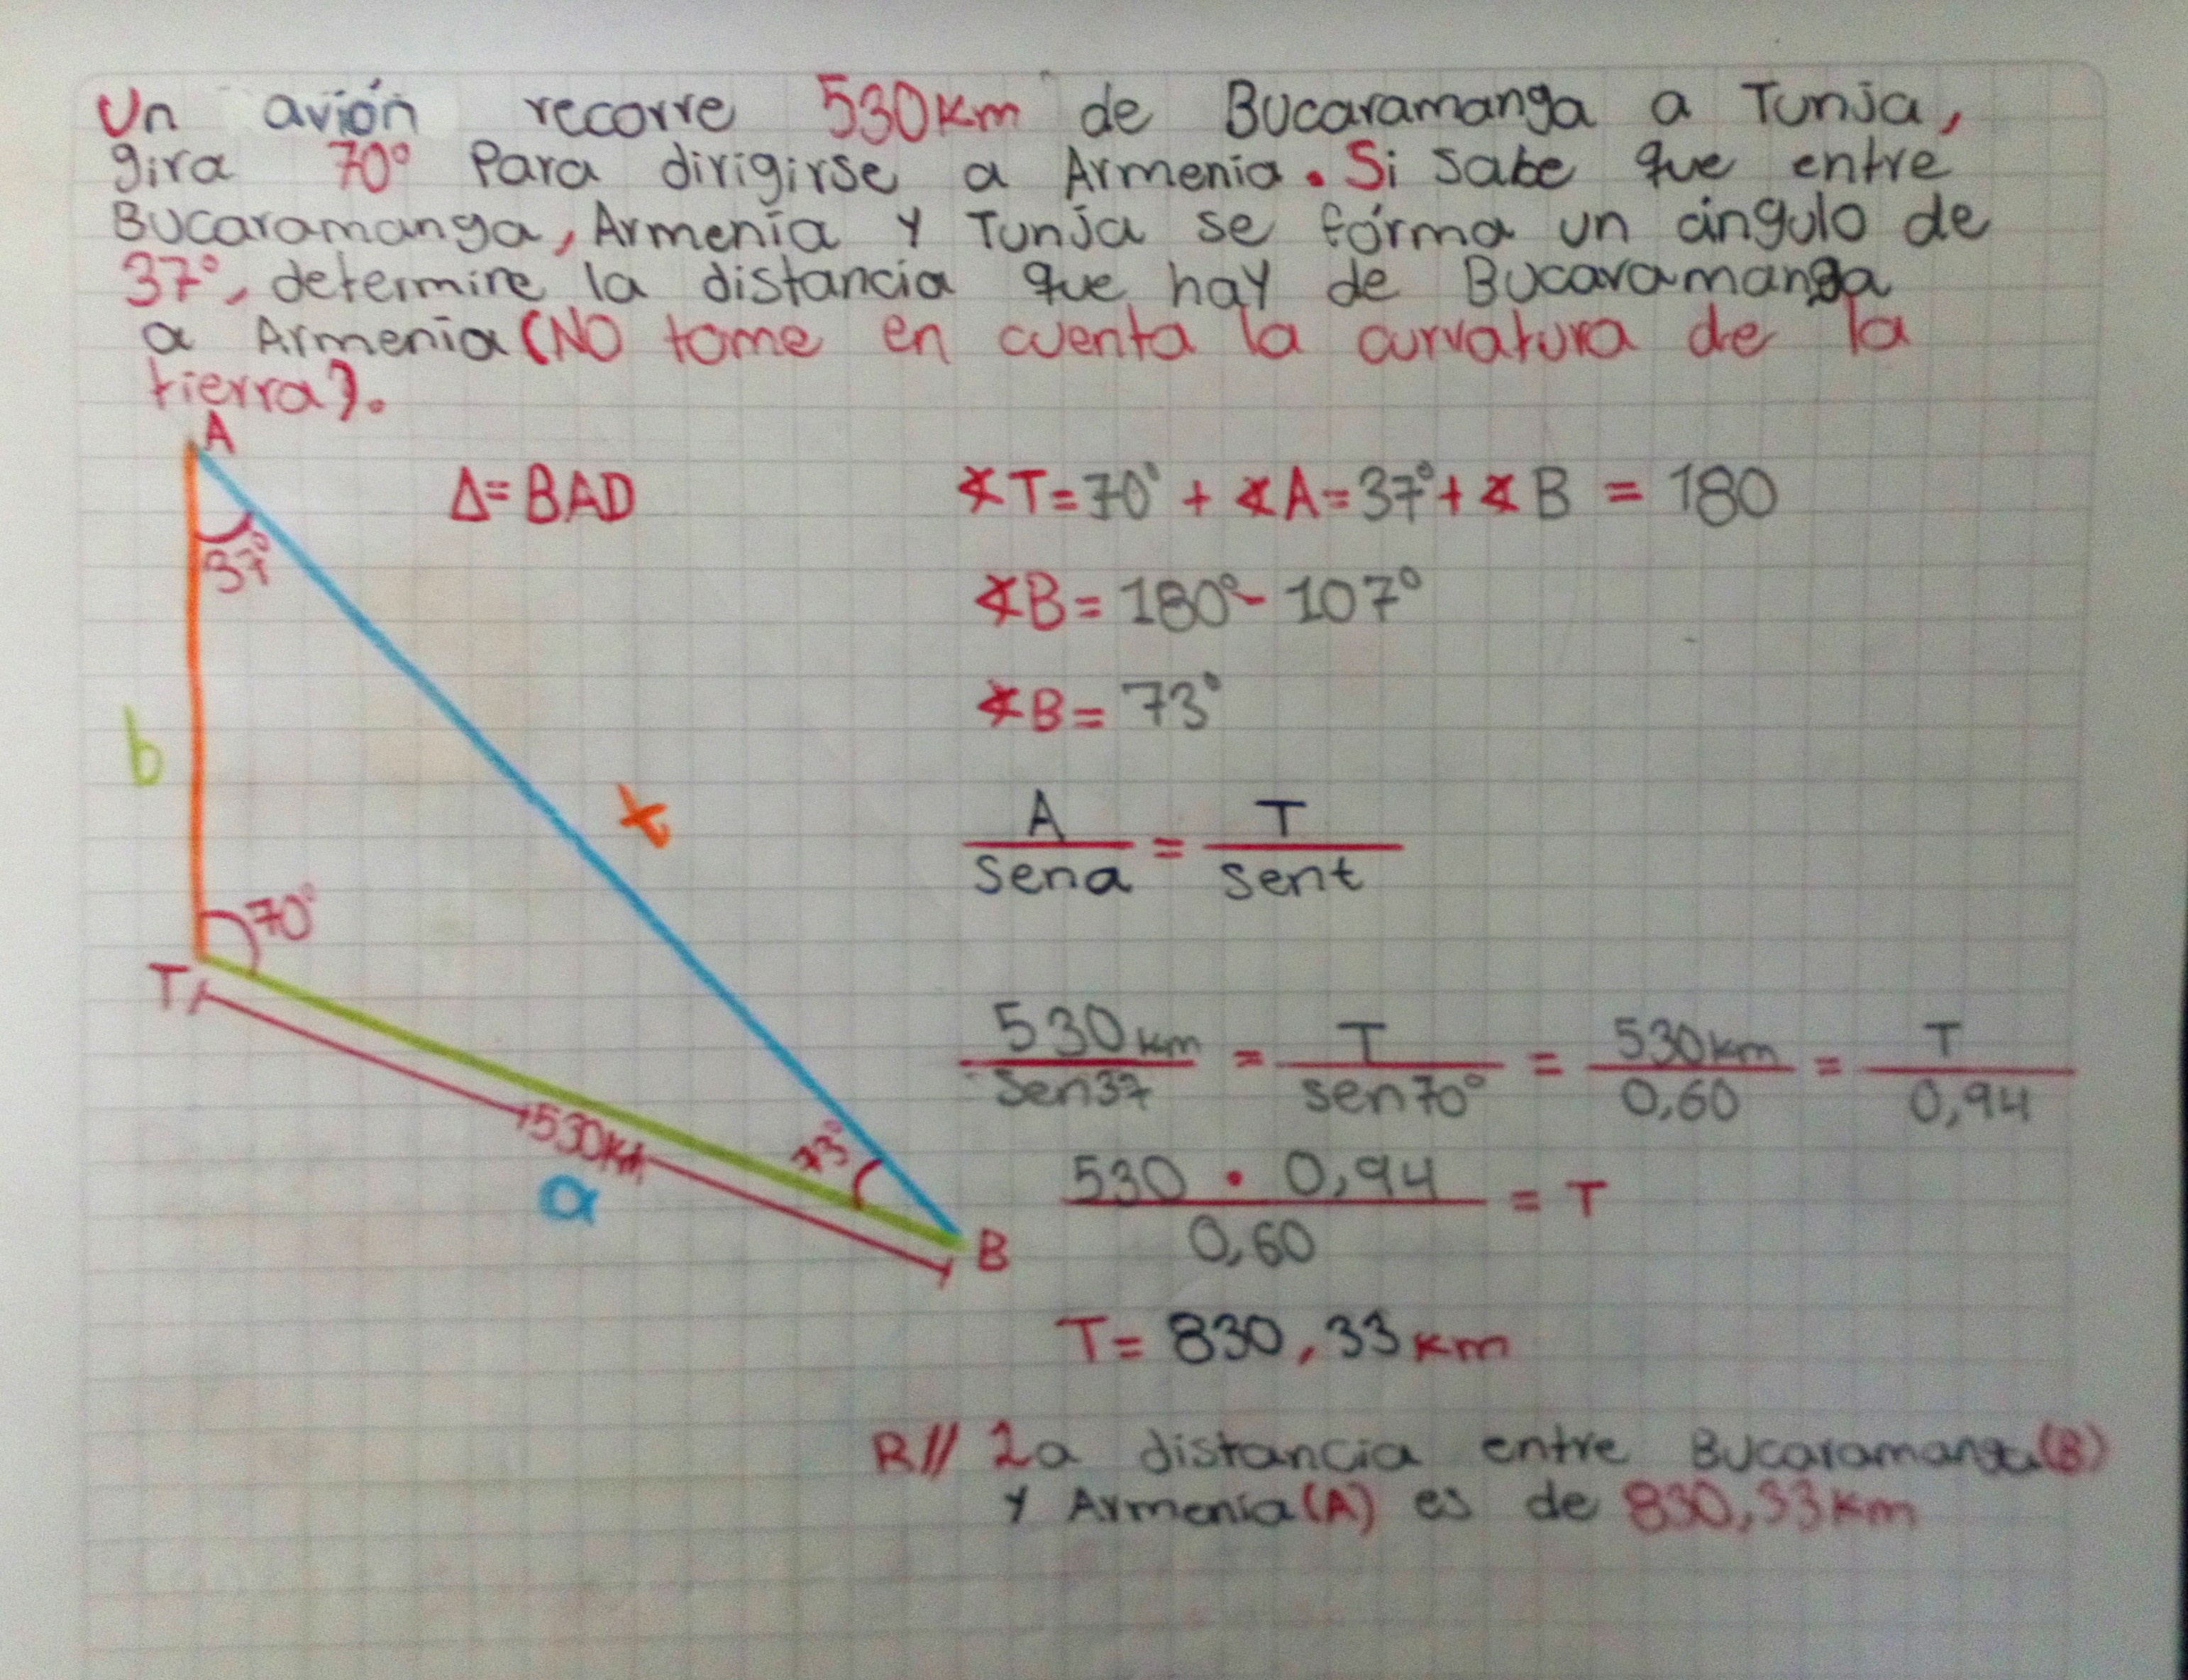 Un avión recorre 530Km de Bucaramanga a Tunja,
gira 70° Para dirigirse a Armenia. Si sabe que entre
Bucaramanga, Armenía y Tunja se fórma un ángulo de
37°, determine la distancia que hay de Bucaramanga
a Armenia (NO tome en cuenta la curvatura de la
tierra).
A
Δ= BAD
∡T=70° + ∡A=37°+ ∡B = 180
37°
∡B= 180°- 107°
∡B= 73°
b
t
A/sena = T/sent
70°
T
530km/sen37 = T/sen70° = 530km/0,60 = T/0,94
530Km
73°
a
B
530 • 0,94/0,60 = T
T= 830,33 km
R// La distancia entre Bucaramanga(B)
y Armenía(A) es de 830,33Km